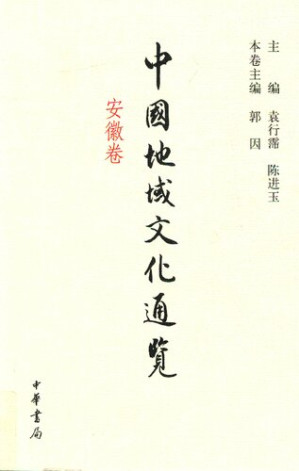 主　编　袁行霈　陈进玉
本卷主编　郭　因
中國地域文化通覽
安徽卷
中華書局